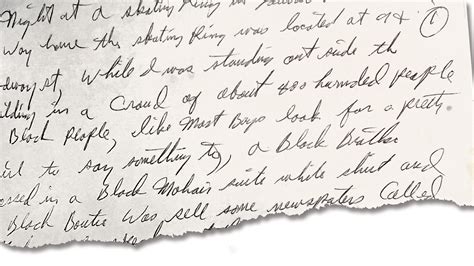 Night at a skating Ring in
way home the skating Ring was located at 94 1
dway st, While I was standing out side th
ilding in a Croud of about 400 harndred people
Black People, like Most Boys look for a pretty.
irl to say something to, a Black Brother
essed in a Black Mohair suite while shirt and
Black Boutie Was sell some newspaters Called